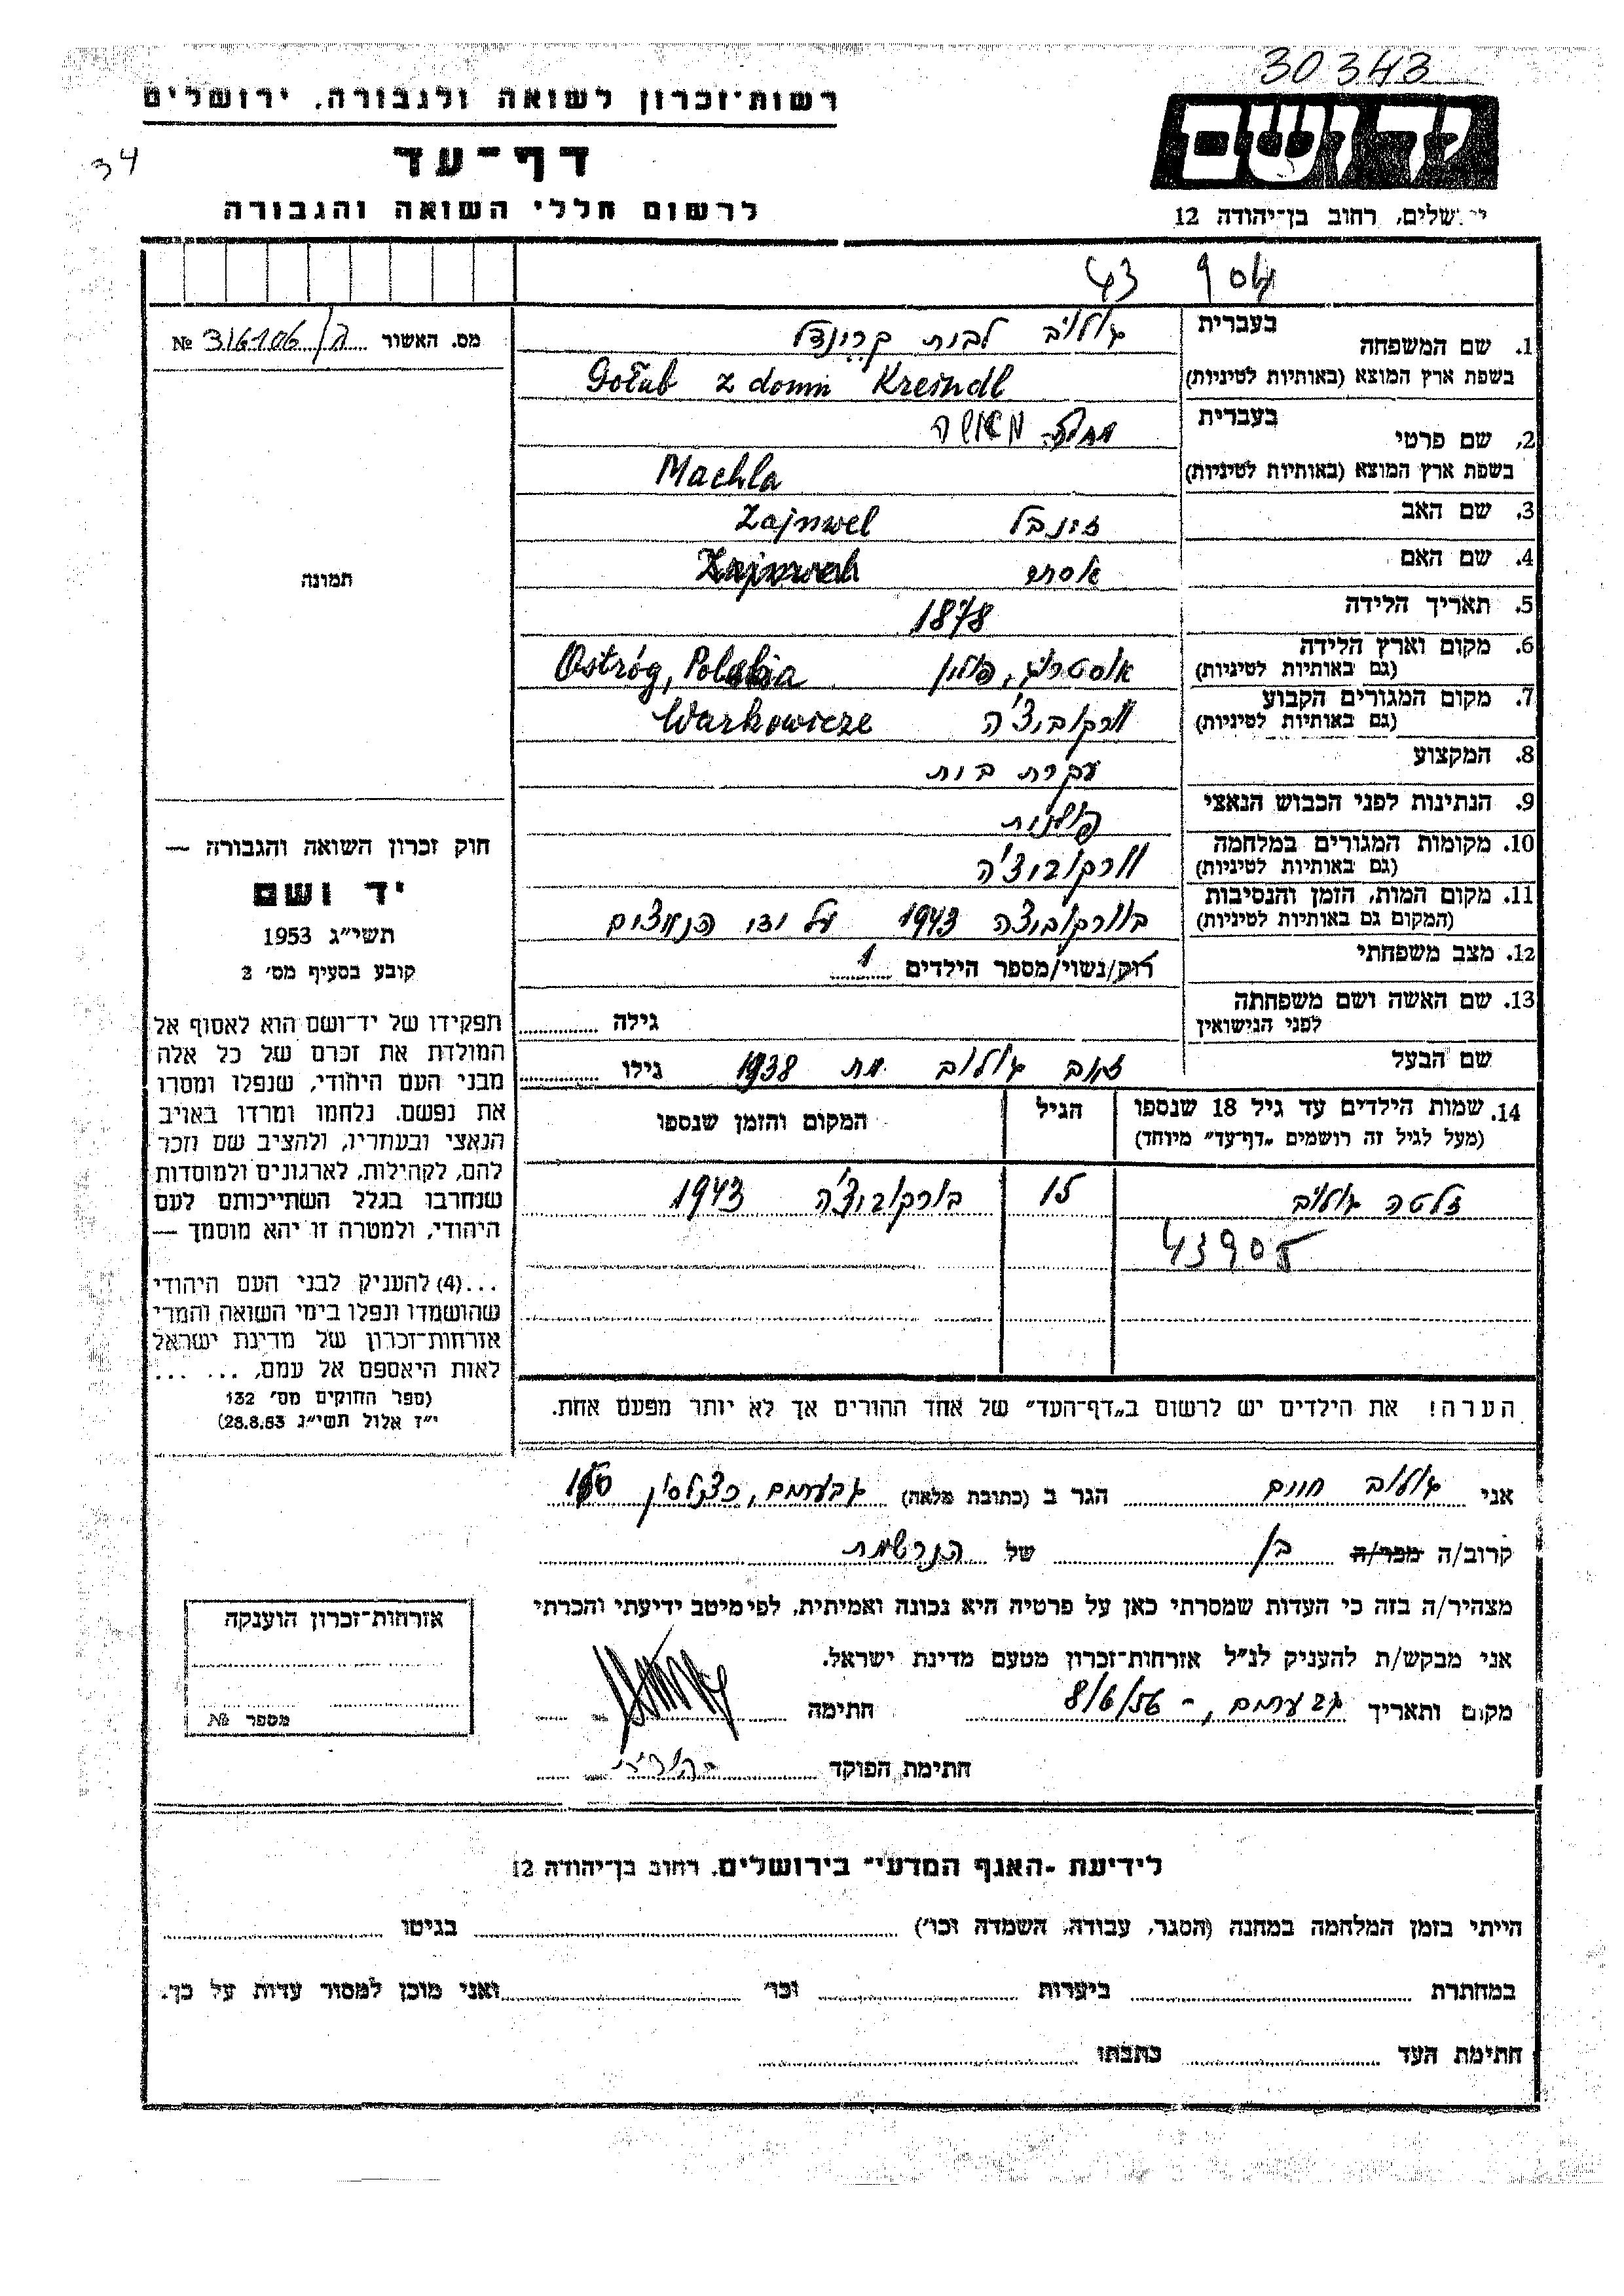 30343
רשות־זכרון לשואה ולגבורה, ירושלים
יד ושם
34
דף־עד
לרשום חללי השואה והגבורה
ירושלים, רחוב בן־יהודה 12
43 904
מס. האשור № 316106/ג
1. שם המשפחה
בעברית גולוב לבית קריינדל
בשפת ארץ המוצא (באותיות לטיניות) Gołub z domu Kreindl
2. שם פרטי
בעברית מחלה
בשפת ארץ המוצא (באותיות לטיניות) Machla
3. שם האב זינבל Zajnwel
4. שם האם אסתר
5. תאריך הלידה 1878
6. מקום וארץ הלידה
(גם באותיות לטיניות) אוסטרוג, פולין Ostróg, Polska
7. מקום המגורים הקבוע
(גם באותיות לטיניות) וורקוביצ'ה Warkowicze
8. המקצוע עקרת בית
9. הנתינות לפני הכבוש הנאצי פולנית
10. מקומות המגורים במלחמה
(גם באותיות לטיניות) וורקוביצ'ה
11. מקום המות, הזמן והנסיבות
(המקום גם באותיות לטיניות) בוורקוביצה 1943 על ידי הנאצים
12. מצב משפחתי רוק/נשוי/מספר הילדים 1
13. שם האשה ושם משפחתה
לפני הנישואין גילה
שם הבעל זאב גולוב מת 1938 גילו
14. שמות הילדים עד גיל 18 שנספו
(מעל לגיל זה רושמים „דף־עד” מיוחד)
הגיל
המקום והזמן שנספו
זלטה גולוב 15 בורקוביצ'ה 1943
43905
הערה! את הילדים יש לרשום ב„דף־העד” של אחד ההורים אך לא יותר מפעם אחת.
תמונה
חוק זכרון השואה והגבורה —
יד ושם
תשי״ג 1953
קובע בסעיף מס׳ 2
תפקידו של יד־ושם הוא לאסוף אל
המולדת את זכרם של כל אלה
מבני העם היהודי, שנפלו ומסרו
את נפשם. נלחמו ומרדו באויב
הנאצי ובעוזריו, ולהציב שם וזכר
להם, לקהילות, לארגונים ולמוסדות
שנחרבו בגלל השתייכותם לעם
היהודי, ולמטרה זו יהא מוסמך —
...(4) להעניק לבני העם היהודי
שהושמדו ונפלו בימי השואה והמרי
אזרחות־זכרון של מדינת ישראל
לאות היאספם אל עמם. ... ...
(ספר החוקים מס׳ 132
י״ז אלול תשי״ג 28.8.53)
אני גולוב חיים הגר ב (כתובת מלאה) גבעתיים, כצנלסון
קרוב/ה מכר/ה בן של הנרשמת
מצהיר/ה בזה כי העדות שמסרתי כאן על פרטיה היא נכונה ואמיתית, לפי מיטב ידיעתי והכרתי
אני מבקש/ת להעניק לנ״ל אזרחות־זכרון מטעם מדינת ישראל.
מקום ותאריך גבעתיים, – 8/6/56 חתימה
חתימת הפוקד
אזרחות־זכרון הוענקה
מספר №
לידיעת -האגף המדעי״ בירושלים. רחוב בן־יהודה 12
הייתי בזמן המלחמה במחנה (הסגר, עבודה, השמדה וכו׳) בגיטו
במחתרת ביערות וכו׳ ואני מוכן למסור עדות על כך.
חתימת העד כתבתו